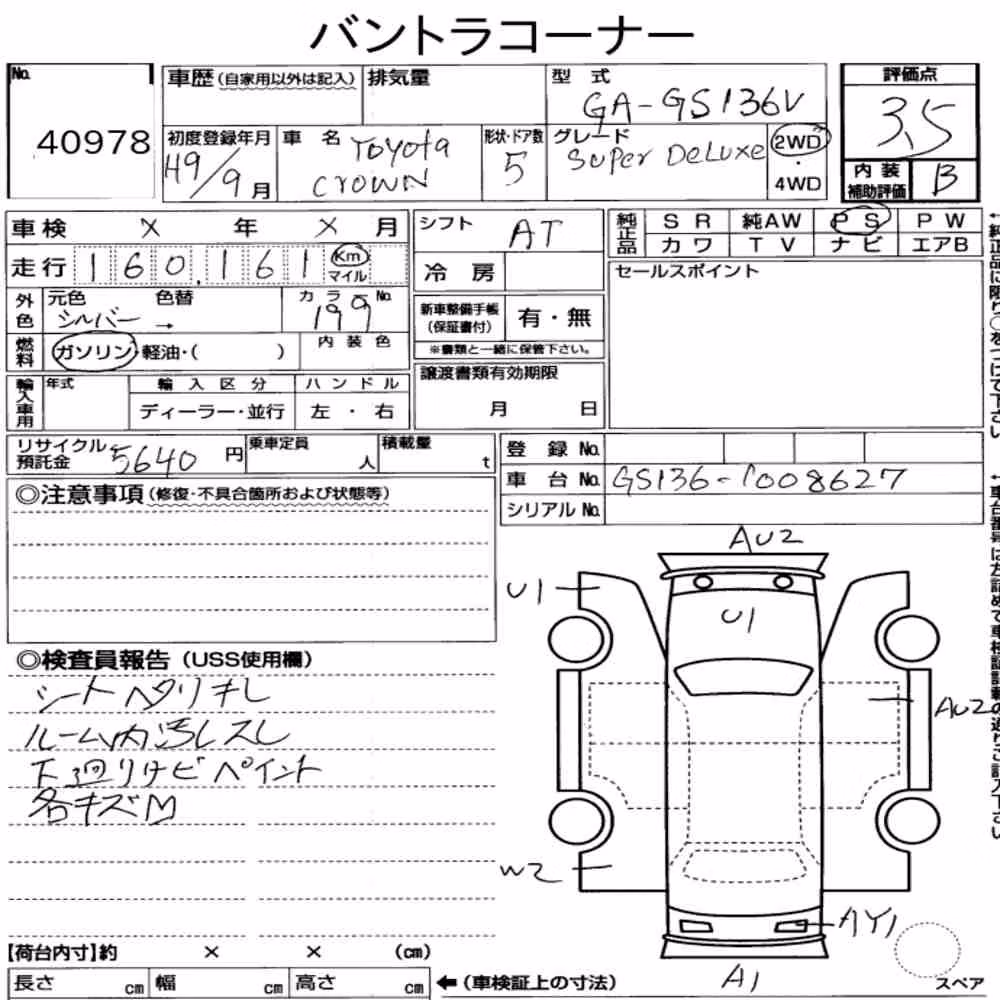 バントラコーナー
No. 40978
車歴(自家用以外は記入)
排気量
型式 GA-GS136V
評価点 3.5
初度登録年月 H9/9月
車名 TOYOTA CROWN
形状・ドア数 5
グレード Super DeLuxe
2WD・4WD
内装補助評価 B
車検 × 年 × 月
シフト AT
純正品 SR 純AW PS PW
カワ TV ナビ エアB
走行 160,161 Km マイル
冷房
セールスポイント
外色 元色 シルバー → 色替 カラーNo. 199
新車整備手帳(保証書付) 有・無
※書類と一緒に保管下さい。
燃料 ガソリン・軽油・( ) 内装色
輸入車用 年式 輸入区分 ディーラー・並行 ハンドル 左・右
譲渡書類有効期限 月 日
リサイクル預託金 5640円 乗車定員 人 積載量 t
登録No.
車台No. GS136-1008627
シリアルNo.
◎注意事項(修復・不具合箇所および状態等)
◎検査員報告(USS使用欄)
シートヘタリキレ
ルーム内汚レスレ
下廻りサビペイント
各キズM
AU2
U1
U1
AU2
W2
AY1
A1
スペア
【荷台内寸】約 × × (cm)
長さ cm 幅 cm 高さ cm ←(車検証上の寸法)